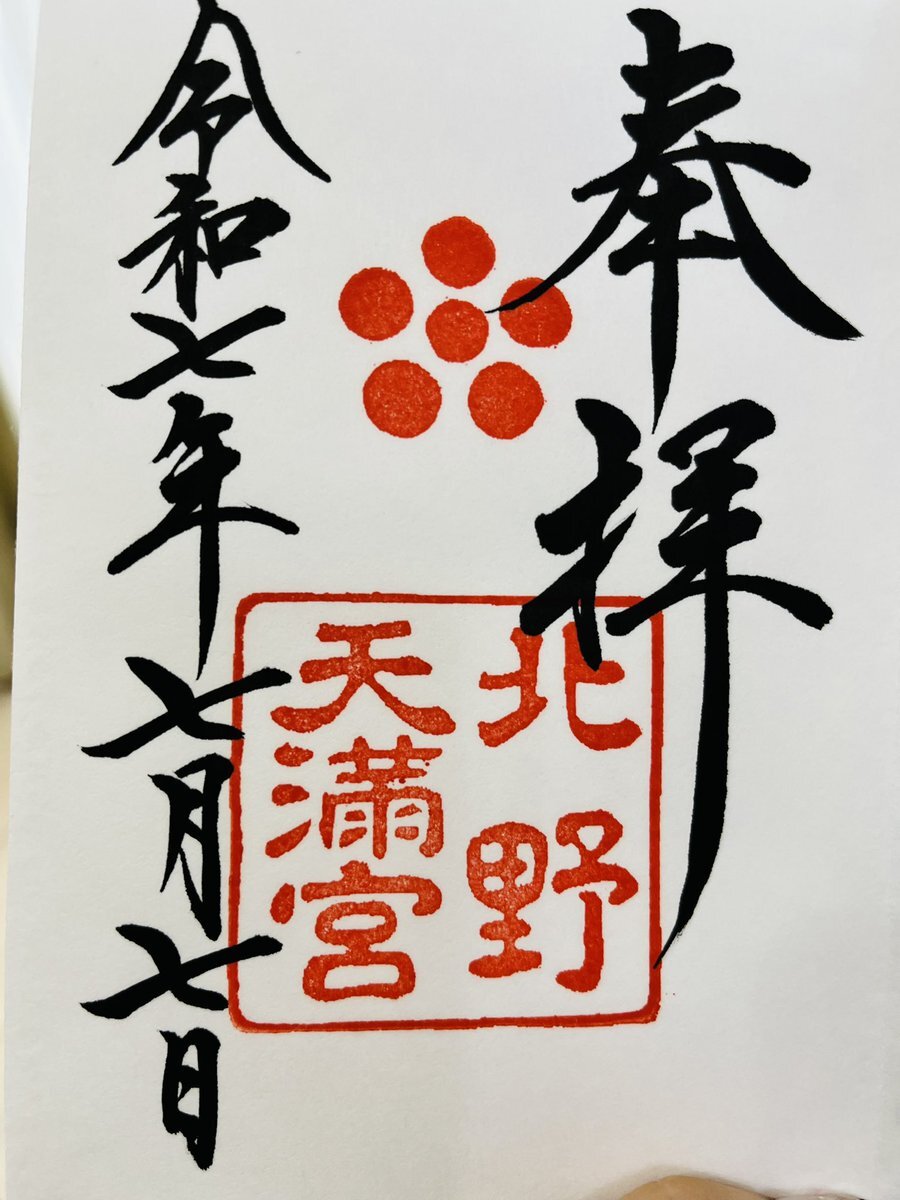 奉拝
北野
天満宮
令和七年七月七日